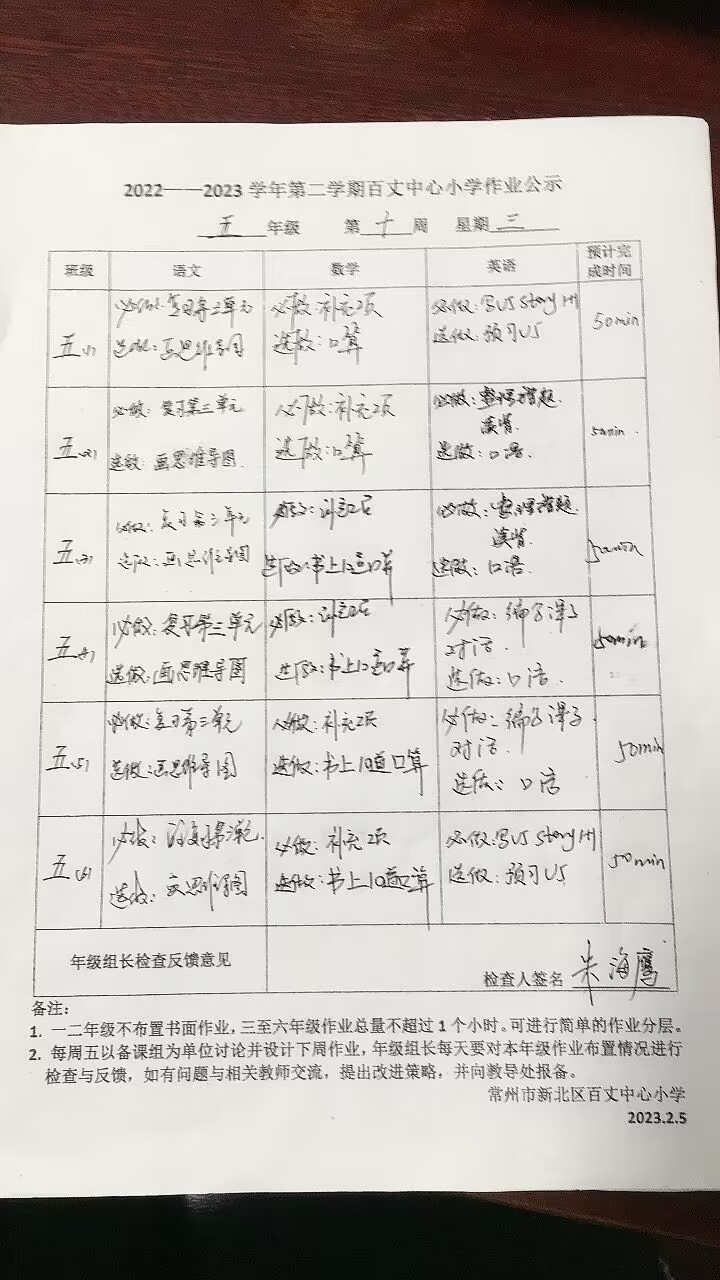 2022——2023 学年第二学期百丈中心小学作业公示
五 年级 第 十 周 星期 三
班级 语文 数学 英语 预计完成时间
五(1) 必做:复习第三单元 必做:补充2项 必做:写U5 Story
选做:画思维导图 选做:口算 选做:预习U5
50min
五(2) 必做:复习第三单元 必做:补充2项 必做:整理错题
读背
选做:画思维导图 选做:口算 选做:口语
50min
五(3) 必做:复习第三单元 必做: 必做:整理错题
读背
选做:画思维导图 选做:书上10道口算 选做:口语
50min
五(4) 必做:复习第三单元 必做: 必做:编写课了
对话
选做:画思维导图 选做:书上10道口算 选做:口语
50min
五(5) 必做:复习第三单元 必做:补充2项 必做:编写课了
对话
选做:画思维导图 选做:书上10道口算 选做:口语
50min
五(6) 必做:复习第三单元 必做:补充2项 必做:写U5 Story
选做:画思维导图 选做:书上10道口算 选做:预习U5
50min
年级组长检查反馈意见 检查人签名 朱海鹰
备注:
1. 一二年级不布置书面作业,三至六年级作业总量不超过 1 个小时。可进行简单的作业分层。
2. 每周五以备课组为单位讨论并设计下周作业,年级组长每天要对本年级作业布置情况进行
检查与反馈,如有问题与相关教师交流,提出改进策略,并向教导处报备。
常州市新北区百丈中心小学
2023.2.5